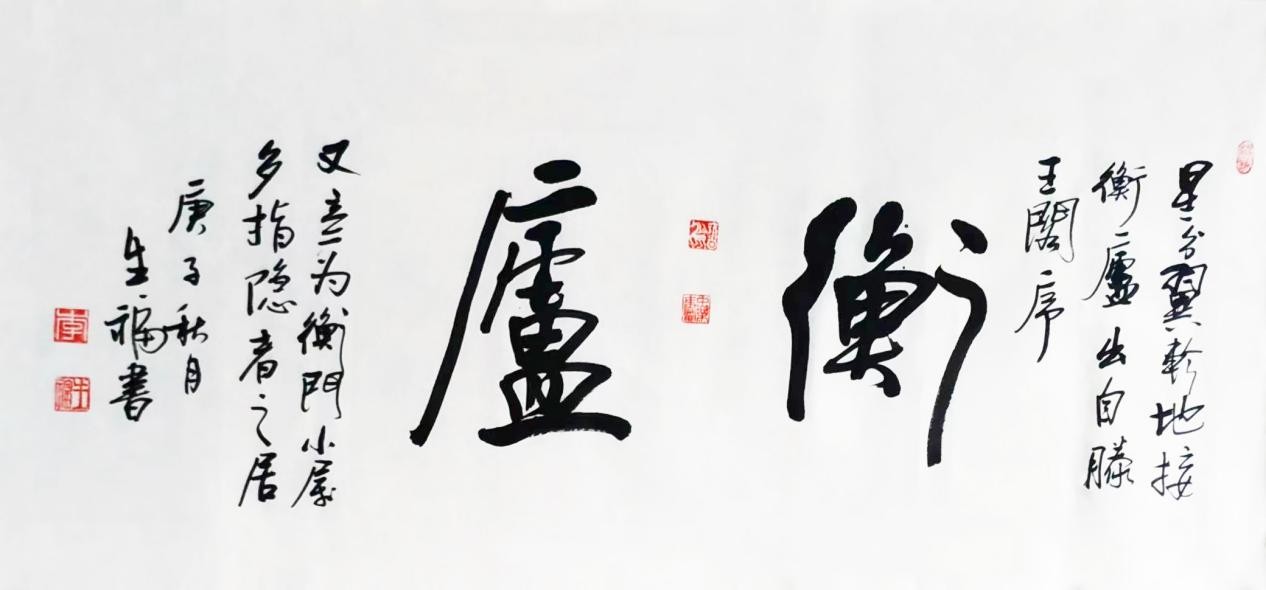 星分翼軫地接
衡廬出自滕
王閣序
衡廬
又意为衡門小屋
多指隐者之居
庚子秋月
生福書